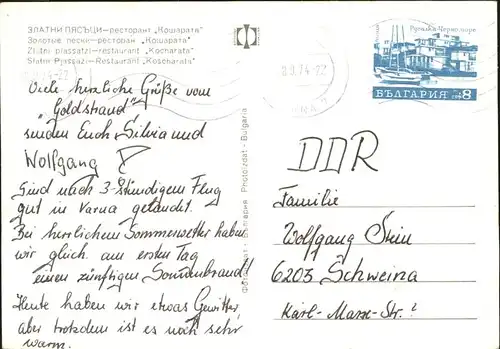 ЗЛАТНИ ПЯСЪЦИ—ресторант „Кошарата"
Золотые пески—ресторан „Кошарата"
Zlatni piassatzi—restaurant „Kocharata"
Slatni Pyassazi—Restaurant „Koscharata"
Viele herzliche Grüße vom
„Goldstrand"
senden Euch Silvia und
Wolfgang
Sind nach 3-stündigem Flug
gut in Varna gelandet.
Bei herrlichem Sommerwetter haben
wir gleich am ersten Tag
einen zünftigen Sonnenbrand!
Heute haben wir etwas Gewitter,
aber trotzdem ist es noch sehr
warm.
Фотоиздат - България Photoizdat - Bulgaria
8.9.74-22
Русалка Черно море
БЪЛГАРИЯ 8
DDR
Familie
Wolfgang Stein
6203 Schweina
Karl-Marx-Str. ?